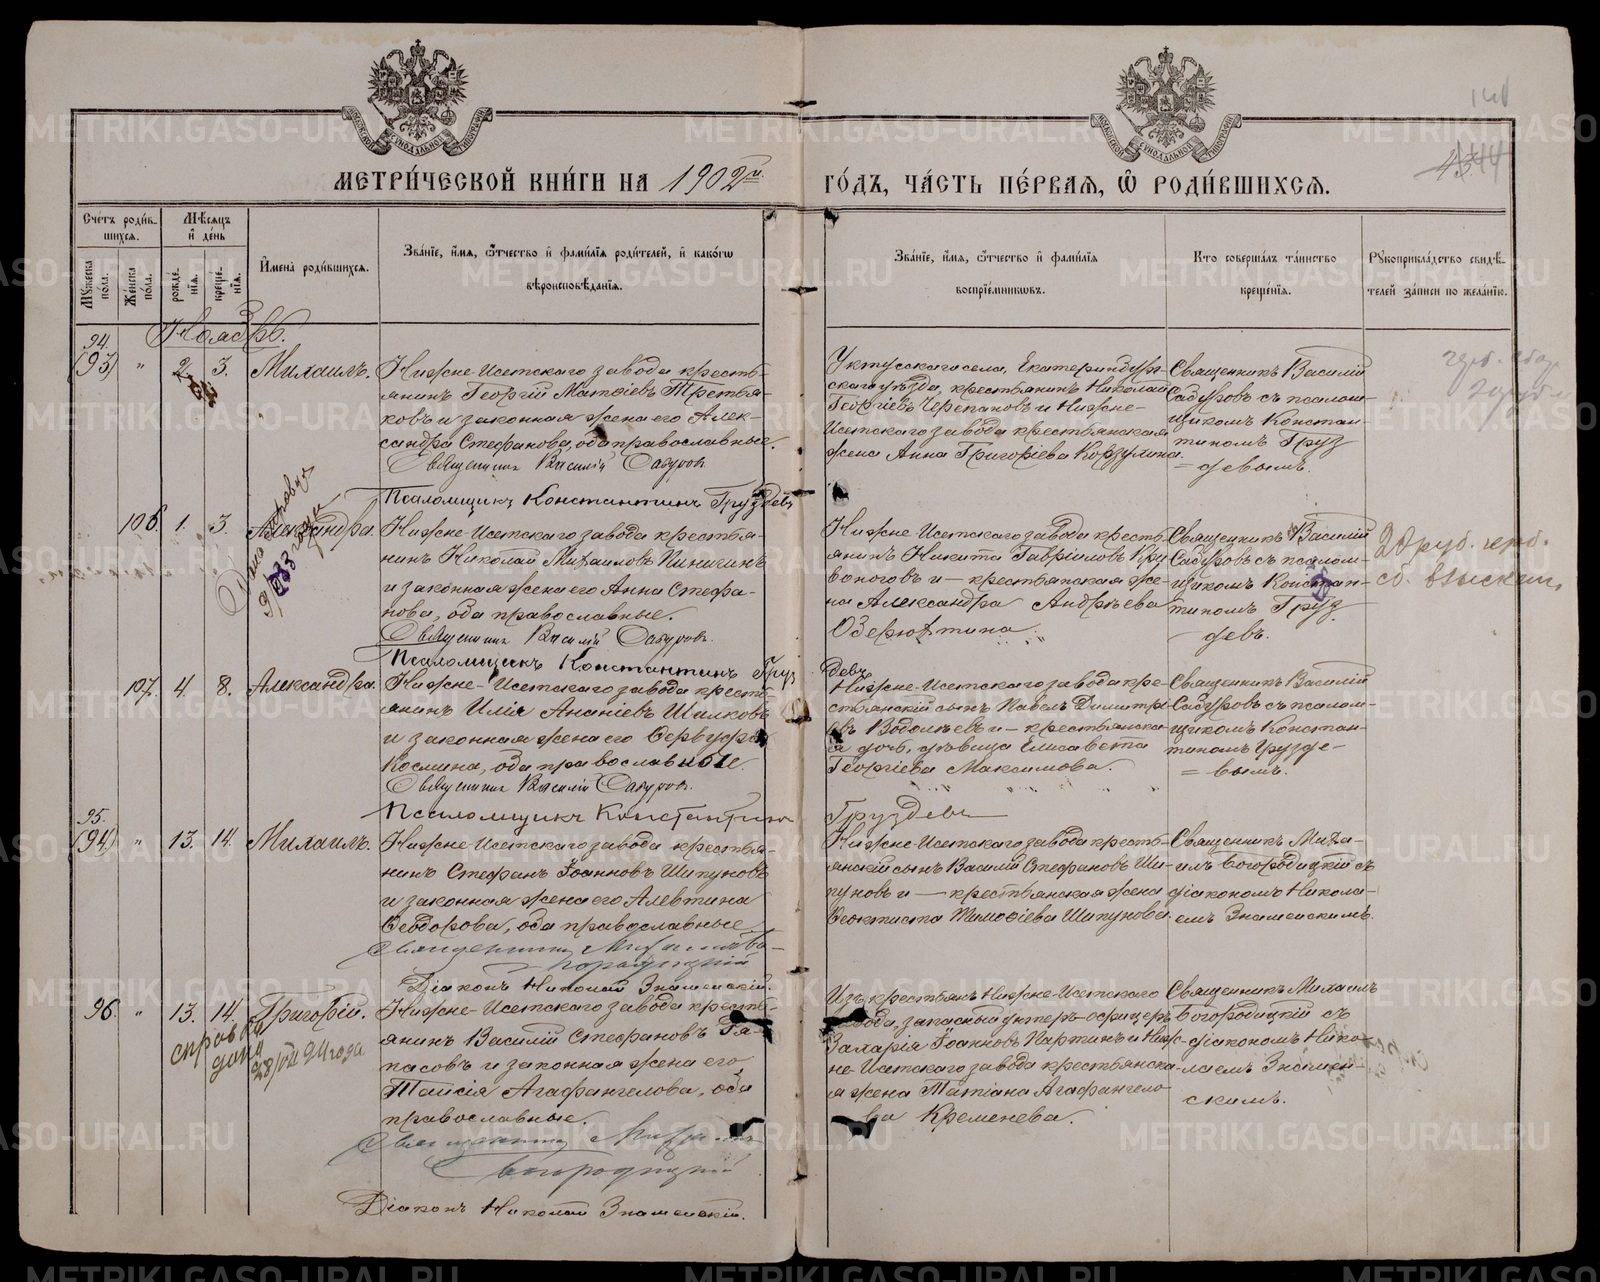 МЕТРИ́ЧЕСКОЙ КНИ́ГИ НА 1902й
ГО́ДЪ, ЧА́СТЬ ПЕ́РВАЯ, Ѡ РОДИ́ВШИХСЯ.
Сче́тъ роди́в-
шихся.
Мѣ́сяцъ
и де́нь
Му́жеска
по́ла.
Же́нска
по́ла.
рожде́-
нія.
креще́-
нія.
И҆мена̀ роди́вшихся.
Зва́ніе, и҆́мя, ѻ҆́тчество и фами́лія роди́телей, и како́гѡ
вѣроисповѣ́данія.
Зва́ніе, и҆́мя, ѻ҆́тчество и фами́лія
воспрїе́мниковъ.
Кто̀ соверша́лъ та́инство
креще́нія.
Рукоприкла́дство свидѣ́-
телей за́писи по жела́нію.
Ноябрь.
94.
(93) " 2. 3. Михаилъ.
Нижне-Исетскаго завода кресть-
янинъ Георгій Матѳіевъ Третья-
ковъ и законная жена его Алек-
сандра Стефанова, оба православные.
Священникъ Василій Сабуровъ
Псаломщикъ Константинъ Груздевъ
Уктусскаго села, Екатеринбург-
скаго уѣзда, крестьянинъ Николай
Георгіевъ Черепановъ и Нижне-
Исетскаго завода крестьянская
жена Анна Григоріева Корзулина.
Священникъ Василій
Сабуровъ съ псалом-
щикомъ Констан-
тиномъ Груз
= девымъ.
106. 1. 3. Александра.
Нижне-Исетскаго завода крестья-
нинъ Николай Михаиловъ Пинигинъ
и законная жена его Анна Стефа-
нова, оба православные.
Священникъ Василій Сабуровъ.
Псаломщикъ Константинъ Груз
девъ
Нижне-Исетскаго завода кресть-
янинъ Никита Гавріиловъ Кри
воноговъ и — крестьянская же-
на Александра Андреева
Озерютина
Священникъ Василій
Сабуровъ съ псалом-
щикомъ Констан-
тиномъ Груз
девъ.
107. 4. 8. Александра.
Нижне-Исетскаго завода кресть-
янинъ Илія Ананіевъ Шилковъ
и законная жена его
Космина, оба православные.
Священникъ Василій Сабуровъ.
Псаломщикъ Константинъ
Груздевъ
Нижне-Исетскаго завода кре-
стьянскій сынъ Павелъ Димитрі-
евъ Водолѣевъ и — крестьянска-
я дочь, дѣвица Елисавета
Георгіева Максимова.
Священникъ Василій
Сабуровъ съ псалом-
щикомъ Констан-
тиномъ Грузде-
= вымъ.
95.
(94) " 13. 14. Михаилъ.
Нижне-Исетскаго завода крестья-
нинъ Стефанъ Іоанновъ Шипуновъ
и законная жена его Алевтина
Ѳеодорова, оба православные.
Священникъ Михаилъ Бо-
городицкій
Діаконъ Николай Знаменскій.
Нижне-Исетскаго завода кресть-
янскій сынъ Василій Стефановъ Ши-
пуновъ и — крестьянская жена
Ѳеоктиста Тимоѳіева Шипунова.
Священникъ Миха-
илъ Богородицкій съ
діакономъ Никола-
емъ Знаменскимъ.
96. " 13. 14. Григорій.
справка
дана
Нижне-Исетскаго завода кресть-
янинъ Василій Стефановъ Га-
пасовъ и законная жена его
Таисія Агафангелова, оба
православные.
Священникъ Михаилъ
Богородицкій
Діаконъ Николай Знаменскій.
Изъ крестьянъ Нижне-Исетскаго
завода, запасный унтеръ-офицеръ
Захарія Іоанновъ Партинъ и Ниж-
не-Исетскаго завода крестьянска-
я жена Татіана Агафангело-
ва Кременева.
Священникъ Михаилъ
Богородицкій съ
діакономъ Нико-
лаемъ Знамен-
скимъ.
METRIKI.GASO-URAL.RU